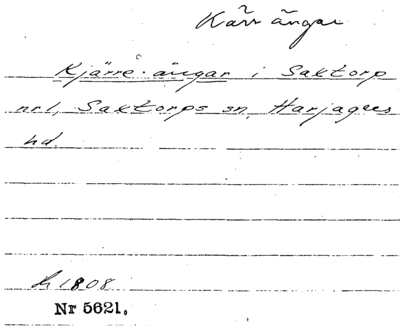 Kärrängar
Kjärre-ängar i Saxtorp
nr 1, Saxtorps sn, Harjagers
hd.
h 1808
Nr 5621.